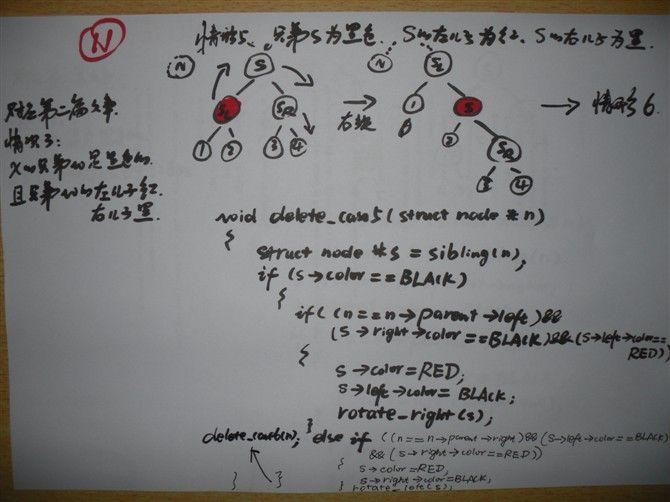 N
情形5. 兄弟S为黑色, S的左儿子为红, S的右儿子为黑.
N
S
SL
SR
1
2
3
4
右旋
N
SL
1
S
2
SR
3
4
情形6.
对应第二篇文章
情况3:
x的兄弟w是黑色的,
且兄弟w的左儿子红.
右儿子黑.
void delete_case5(struct node *n)
{
struct node *s = sibling(n);
if (s→color==BLACK)
{
if( (n==n→parent→left)&&
(s→right→color==BLACK)&&(s→left→color==
RED))
{
s→color=RED;
s→left→color= BLACK;
rotate_right(s);
} else if ((n==n→parent→right)&&(s→left→color==BLACK)
&&(s→right→color==RED))
{
s→color=RED;
s→right→color=BLACK;
rotate_left(s);
delete_case6(n);
}
}